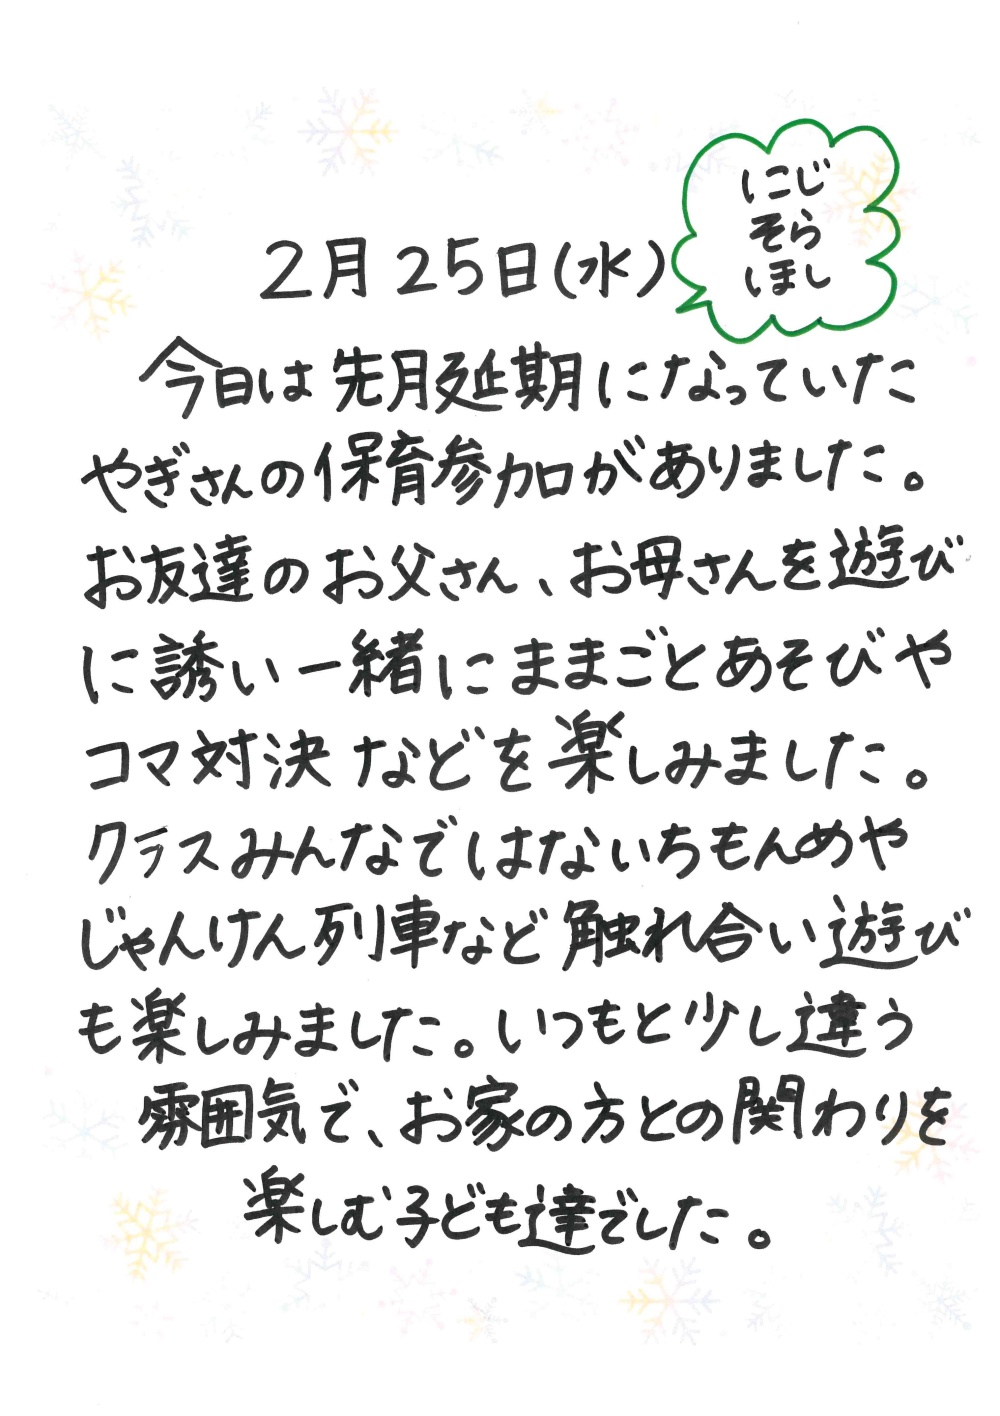 にじ
そら
ほし
2月25日(水)
今日は先月延期になっていた
やぎさんの保育参加がありました。
お友達のお父さん、お母さんを遊び
に誘い一緒にままごとあそびや
コマ対決などを楽しみました。
クラスみんなではないちもんめや
じゃんけん列車など触れ合い遊び
も楽しみました。いつもと少し違う
雰囲気で、お家の方との関わりを
楽しむ子ども達でした。